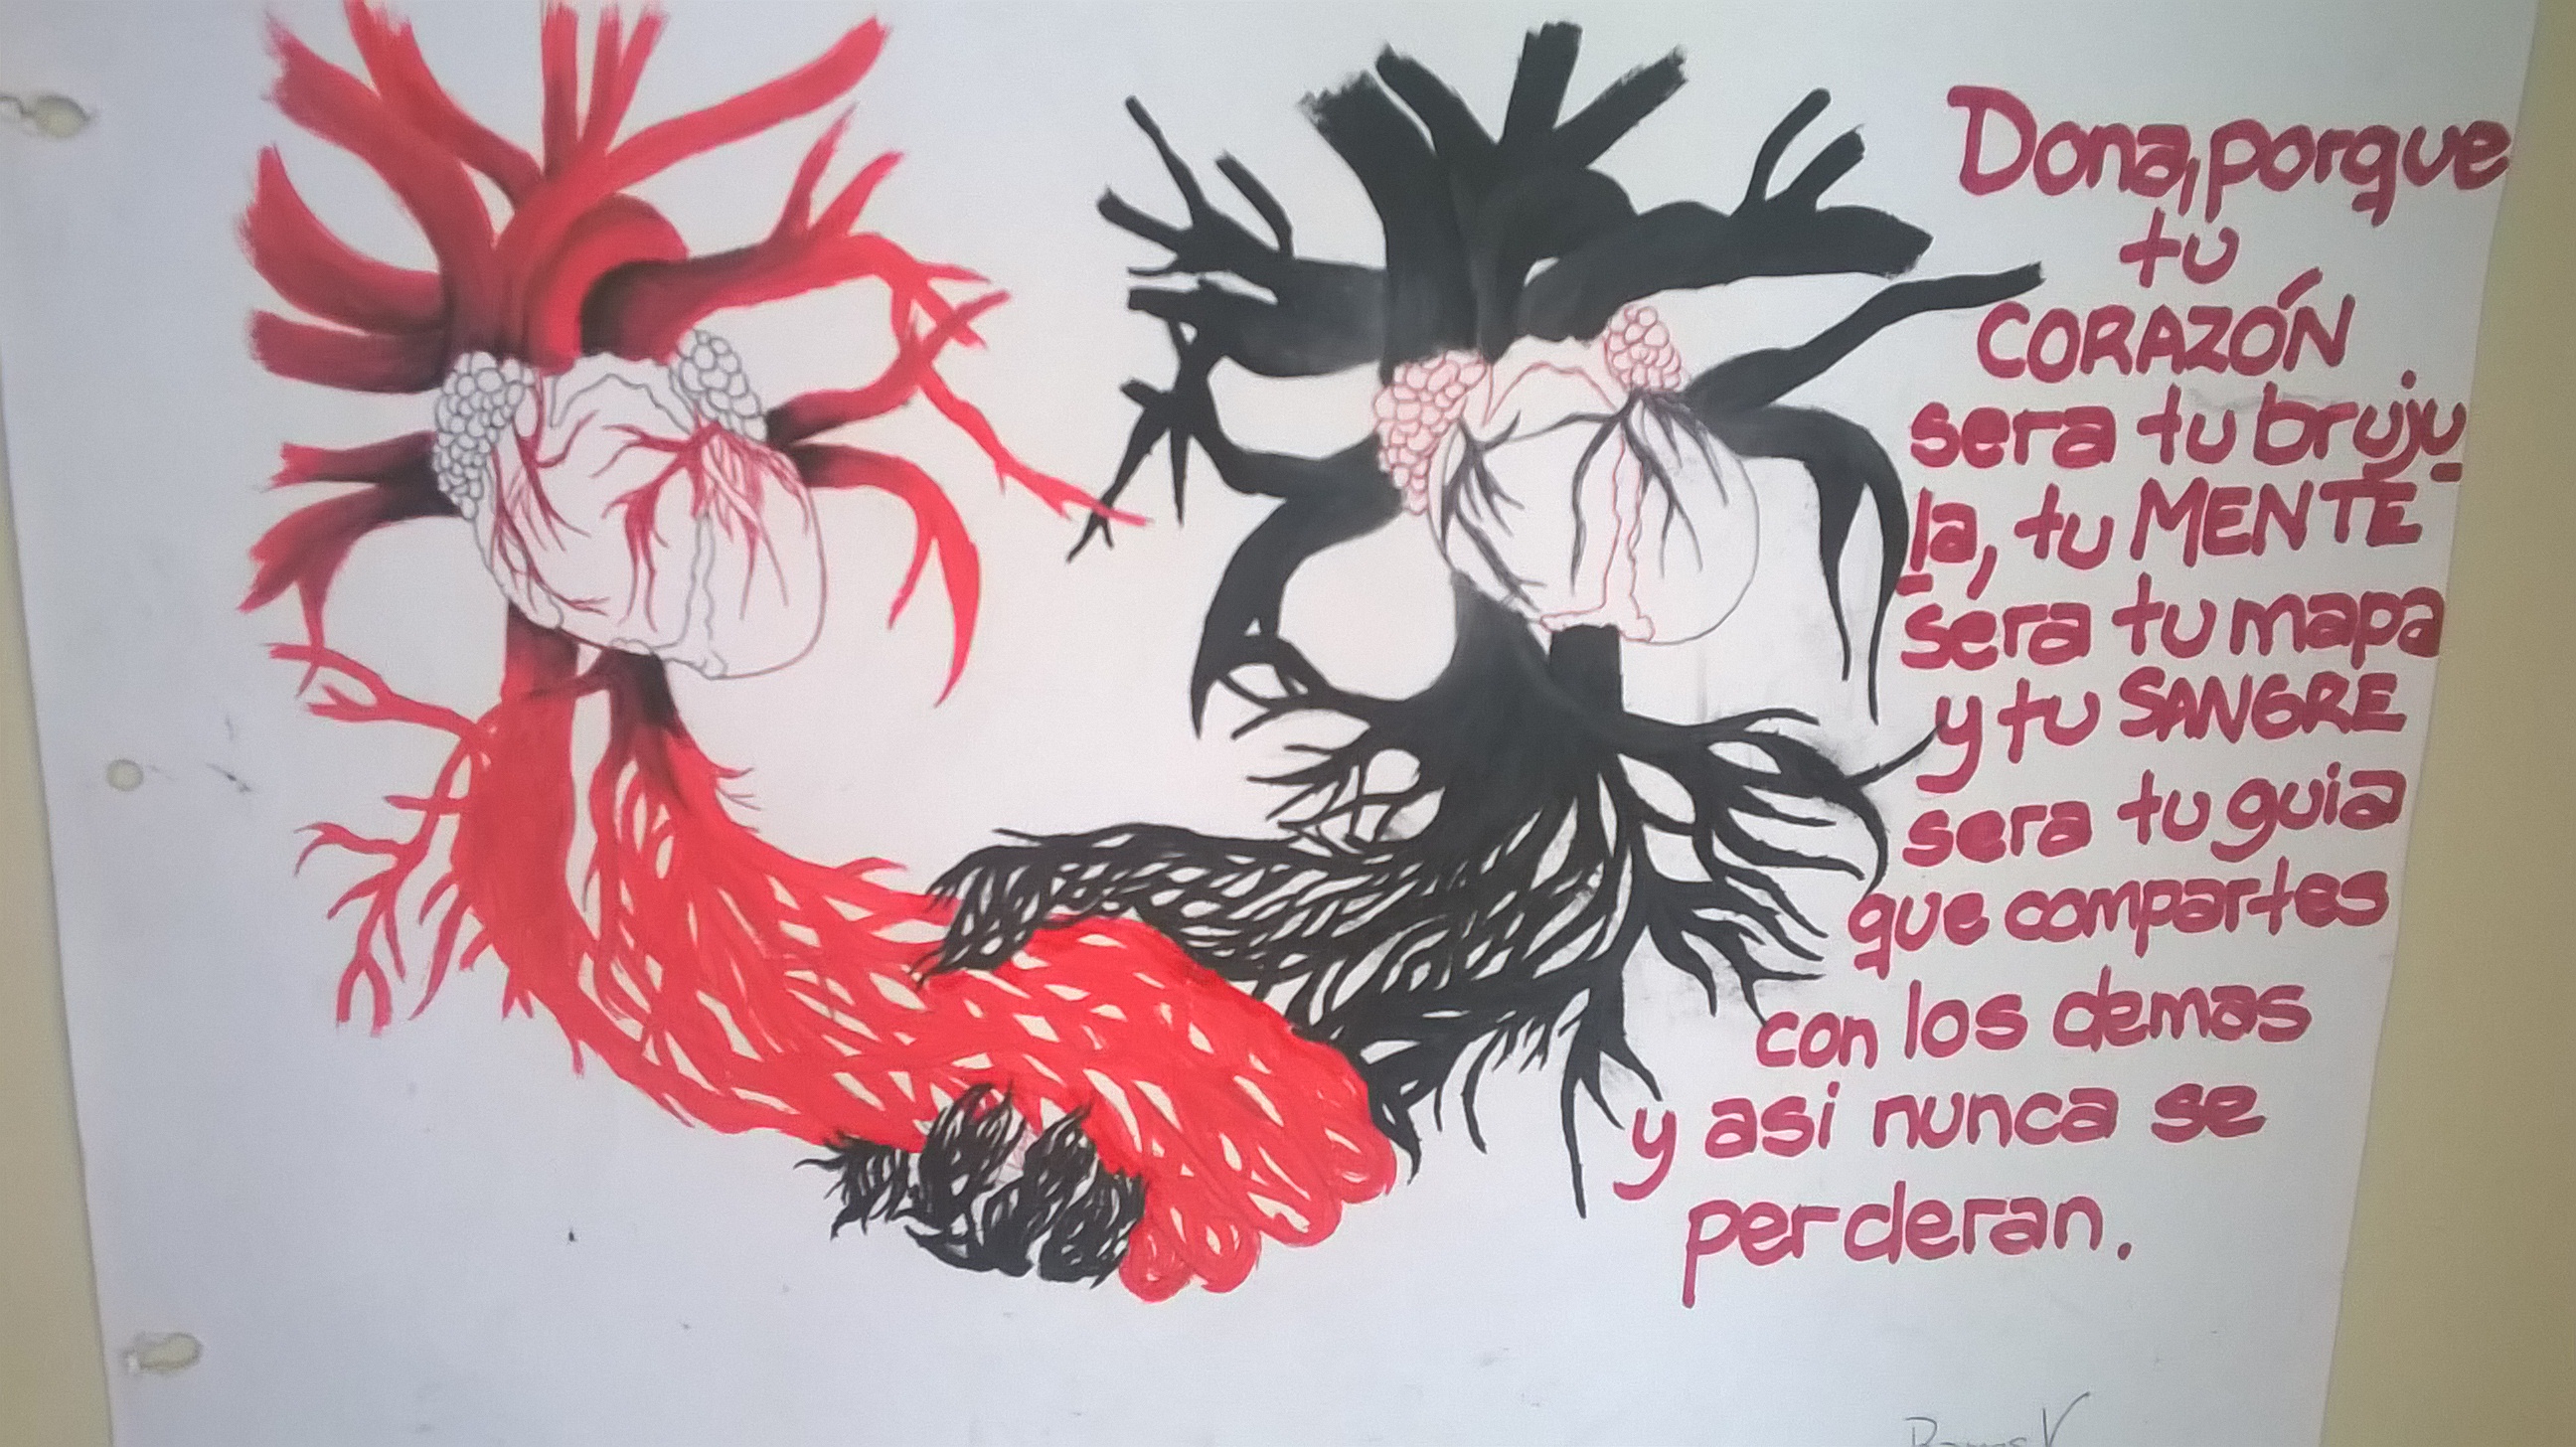 Dona, porque
tu
CORAZÓN
sera tu bruju
la, tu MENTE
sera tu mapa
y tu SANGRE
sera tu guia
que compartes
con los demas
y asi nunca se
perderan.